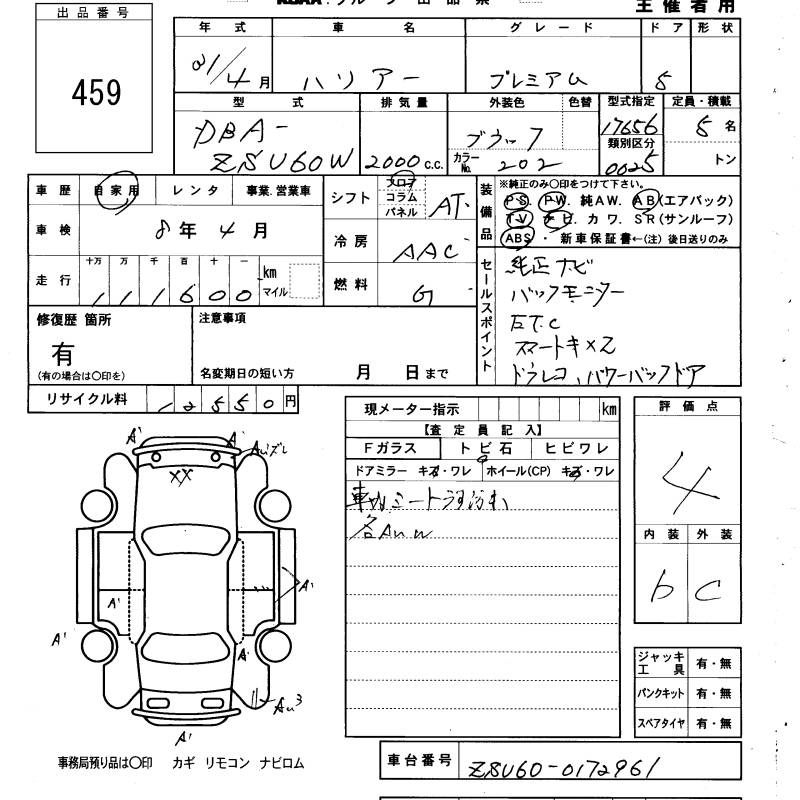 主催者用
出品番号
459
年式 車名 グレード ドア 形状
21/4月 ハリアー プレミアム 5
型式 排気量 外装色 色替 型式指定 定員・積載
DBA-
ZSU60W 2000 c.c. ブラック 17656 5名
類別区分
カラーNo. 202 0025 トン
車歴 自家用 レンタ 事業.営業車
シフト フロア コラム パネル AT
車検 8年4月
冷房 AAC
走行 十万 万 千 百 十 一
111600 km マイル
燃料 G
装備品 ※純正のみ〇印をつけて下さい。
PS. PW. 純AW. AB(エアバック)
TV. ナビ. カワ. SR(サンルーフ)
ABS ・ 新車保証書←(注) 後日送りのみ
セールスポイント
純正ナビ
バックモニター
ETC
スマートキ×2
ドラレコ、パワーバックドア
修復歴 箇所
有
(有の場合は〇印を)
注意事項
名変期日の短い方 月 日まで
リサイクル料 12550円
現メーター指示 km
【査定員記入】
Fガラス トビ石 ヒビワレ
ドアミラー キズ・ワレ ホイール(CP) キズ・ワレ
各AUW
評価点
4
内装 外装
b C
A' A'
A'
A'
A' A
A'
ジャッキ 工具 有・無
パンクキット 有・無
スペアタイヤ 有・無
事務局預り品は〇印 カギ リモコン ナビロム
車台番号 ZSU60-0172961